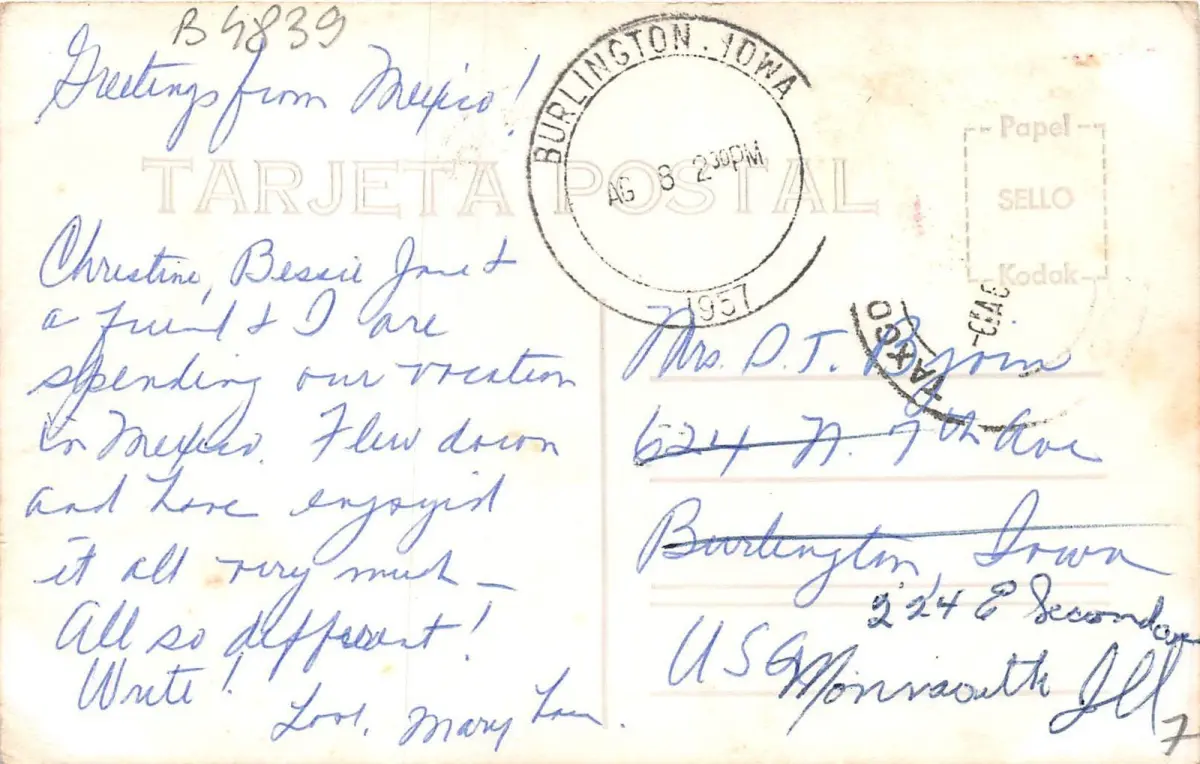 B4839
Greetings from Mexico!
TARJETA POSTAL
BURLINGTON. IOWA
AG 8 2 30PM
1957
Papel
SELLO
Kodak
TAXCO
Christine, Bessie Jane &
a friend & I are
spending our vacation
in Mexico. Flew down
and have enjoyed
it all very much –
All so different!
Write!
Love, Mary Lou.
Mrs. D. T.
624 N. 7th Ave
Burlington, Iowa
USA
224 E Second ave
Monmouth Ill
7